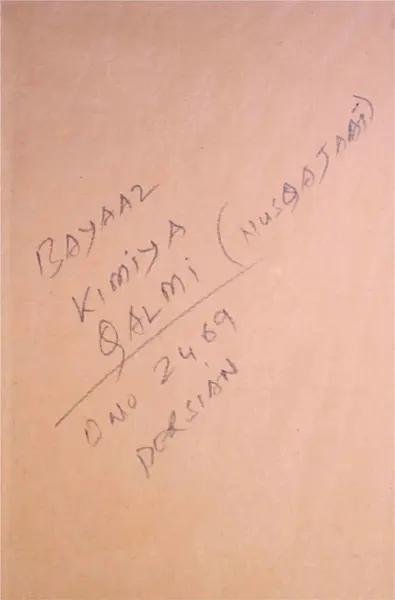 BAYAAZ
KIMIYA
QALMI (NUSQAJAAT)
D NO 2469
PERSIAN